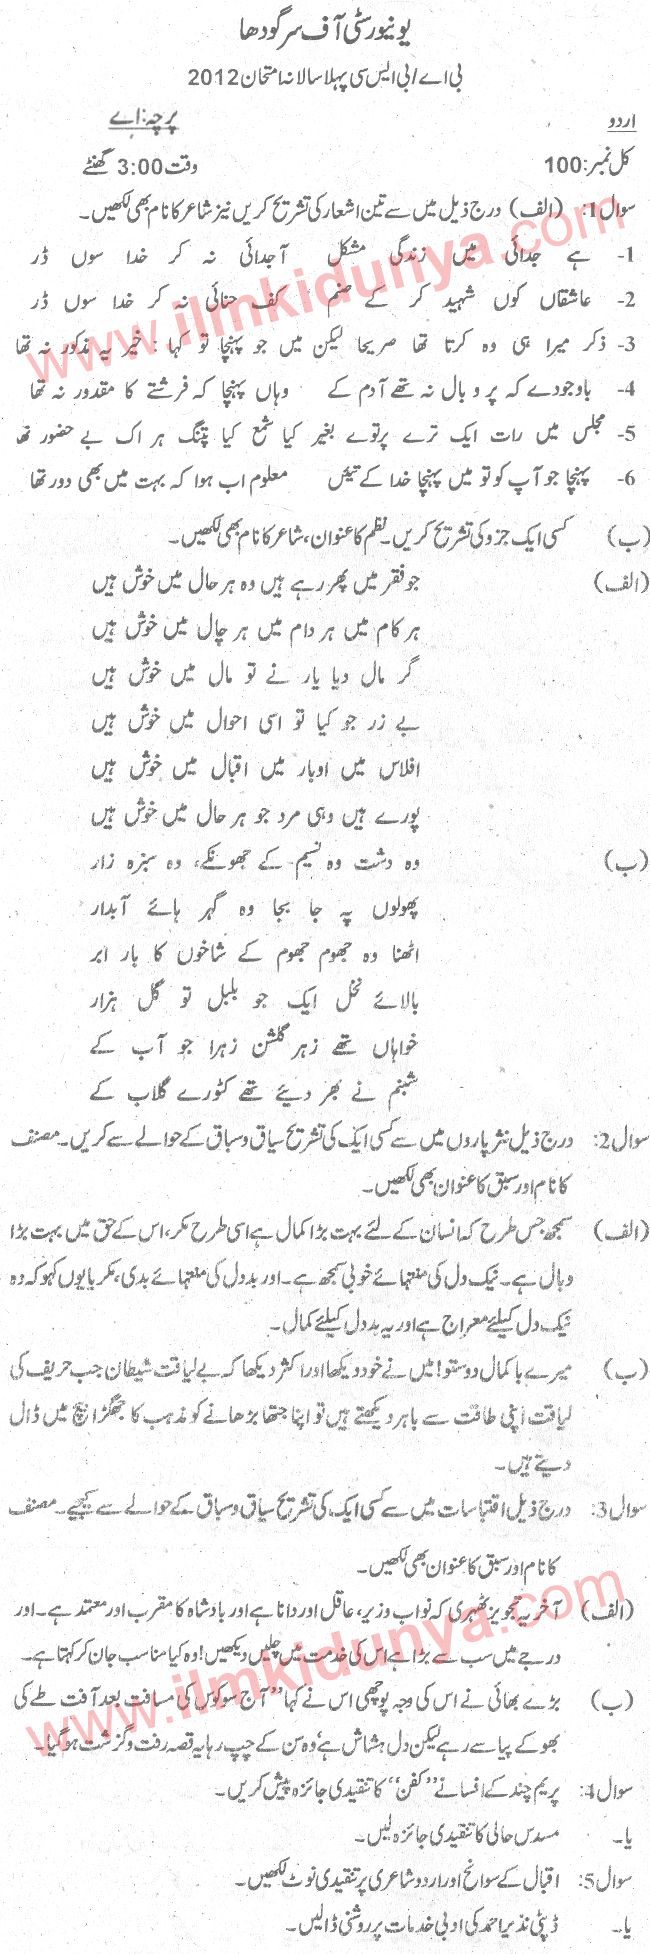 یونیورسٹی آف سرگودھا
بی اے/بی ایس سی پہلا سالانہ امتحان 2012
اردو پرچہ: اے
کل نمبر: 100 وقت 3:00 گھنٹے
سوال 1: (الف) درج ذیل میں سے تین اشعار کی تشریح کریں نیز شاعر کا نام بھی لکھیں۔
1- ہے جدائی میں زندگی مشکل آ جدائی نہ کر خدا سوں ڈر
2- عاشقاں کوں شہید کر کے صنم کف حنائی نہ کر خدا سوں ڈر
3- ذکر میرا ہی وہ کرتا تھا صریحا لیکن میں جو پہنچا تو کہا : خیر یہ مذکور نہ تھا
4- باوجودے کہ پر و بال نہ تھے آدم کے وہاں پہنچا کہ فرشتے کا مقدور نہ تھا
5- مجلس میں رات ایک ترے پرتوے بغیر کیا شمع کیا پتنگ ہر اک بے حضور تھا
6- پہنچا جو آپ کو تو میں پہنچا خدا کے تیئں معلوم اب ہوا کہ بہت میں بھی دور تھا
(ب) کسی ایک جزو کی تشریح کریں۔ نظم کا عنوان، شاعر کا نام بھی لکھیں۔
(الف) جو فقر میں پھر رہے ہیں وہ ہر حال میں خوش ہیں
ہر کام میں ہر دام میں ہر چال میں خوش ہیں
گر مال دیا یار نے تو مال میں خوش ہیں
بے زر جو کیا تو اسی احوال میں خوش ہیں
افلاس میں اوبار میں اقبال میں خوش ہیں
پورے ہیں وہی مرد جو ہر حال میں خوش ہیں
(ب) وہ دشت وہ نسیم کے جھونکے، وہ سبزہ زار
پھولوں پہ جا بجا وہ گہر ہائے آبدار
اٹھنا وہ جھوم جھوم کے شاخوں کا بار ابر
بالائے نخل ایک جو بلبل تو گل ہزار
خواہاں تھے زہر گلشن زہرا جو آب کے
شبنم نے بھر دیئے تھے کٹورے گلاب کے
سوال 2: درج ذیل نثر پاروں میں سے کسی ایک کی تشریح سیاق و سباق کے حوالے سے کریں۔ مصنف
کا نام اور سبق کا عنوان بھی لکھیں۔
(الف) سمجھ جس طرح کہ انسان کے لئے بہت بڑا کمال ہے اسی طرح مکر، اس کے حق میں بہت بڑا
وبال ہے۔ نیک دل کی منتہائے خوبی سمجھ ہے۔ اور بددل کی منتہائے بدی، مکر یا یوں کہو کہ وہ
نیک دل کیلئے معراج ہے اور یہ بددل کیلئے کمال۔
(ب) میرے باکمال دوستو! میں نے خود دیکھا اور اکثر دیکھا کہ بے لیاقت شیطان جب حریف کی
لیاقت اپنی طاقت سے باہر دیکھتے ہیں تو اپنا جتھا بڑھانے کو مذہب کا جھگڑا بیچ میں ڈال
دیتے ہیں۔
سوال 3: درج ذیل اقتباسات میں سے کسی ایک کی تشریح سیاق و سباق کے حوالے سے کیجیے۔ مصنف
کا نام اور سبق کا عنوان بھی لکھیں۔
(الف) آخر یہ تجویز ٹھہری کہ نواب وزیر، عاقل اور دانا ہے اور بادشاہ کا مقرب اور معتمد ہے۔ اور
درجے میں سب سے بڑا ہے اس کی خدمت میں چلیں دیکھیں! وہ کیا مناسب جان کر کہتا ہے۔
(ب) بڑے بھائی نے اس کی وجہ پوچھی اس نے کہا "آج سو کوس کی مسافت بعد آفت طے کی
بھوکے پیاسے رہے لیکن دل ہشاش ہے وہ سن کے چپ رہا یہ قصہ رفت و گزشت ہو گیا۔
سوال 4: پریم چند کے افسانے "کفن" کا تنقیدی جائزہ پیش کریں۔
یا۔ مسدس حالی کا تنقیدی جائزہ لیں۔
سوال 5: اقبال کے سوانح اور اردو شاعری پر تنقیدی نوٹ لکھیں۔
یا۔ ڈپٹی نذیر احمد کی ادبی خدمات پر روشنی ڈالیں۔
www.ilmkidunya.com
www.ilmkidunya.com